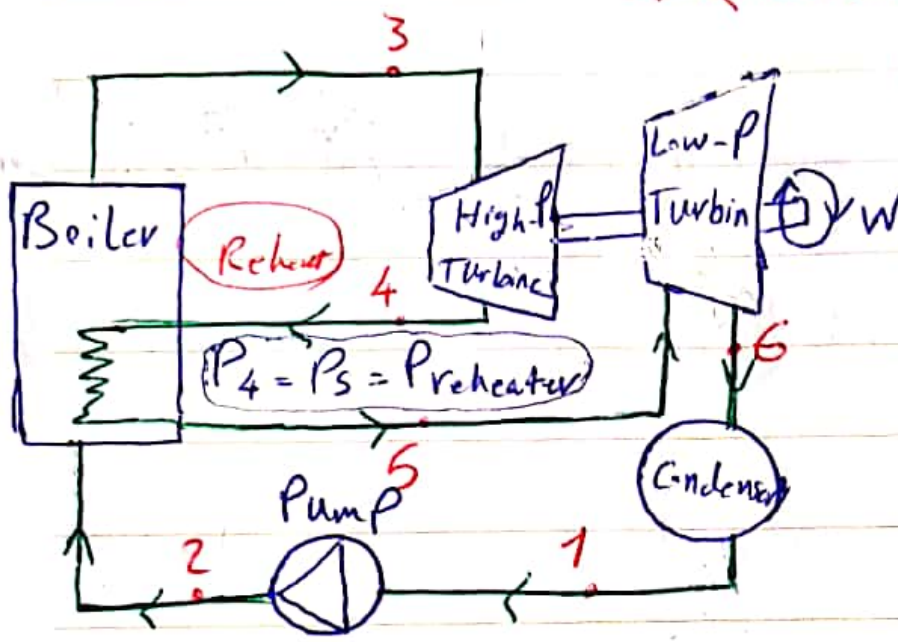 3
Boiler
Reheat
High-P
Turbine
Low-P
Turbin
W
4
P4 = P5 = Preheater
6
5
Condenser
Pump
2
1